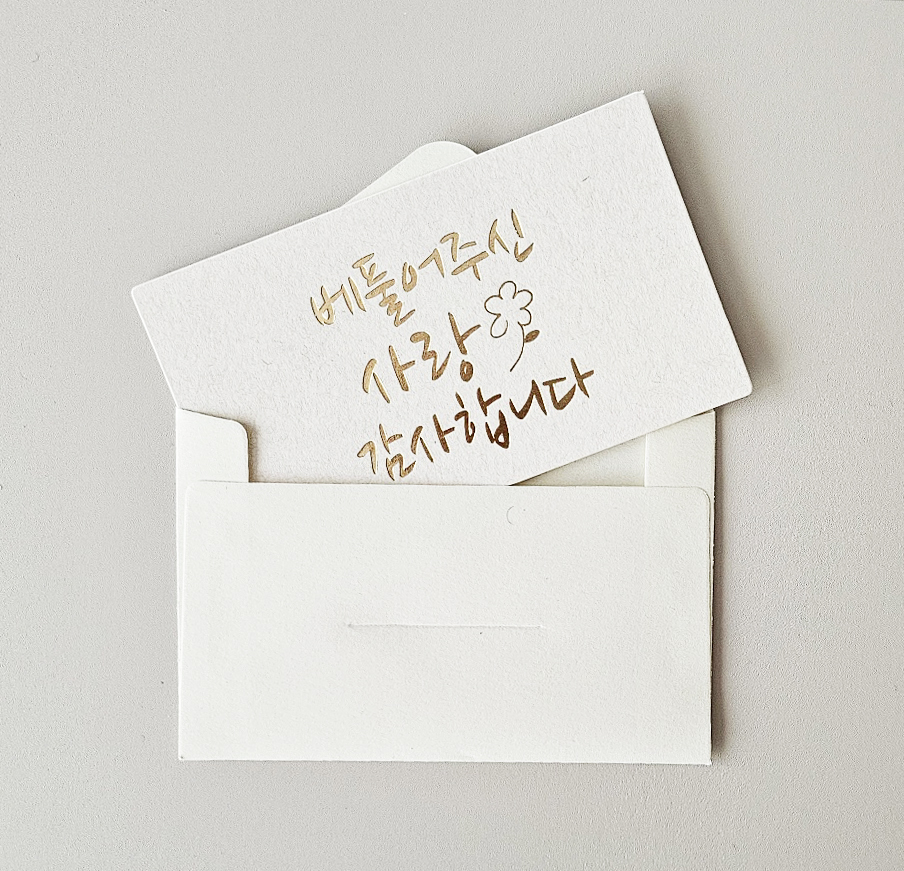 베풀어주신
사랑
감사합니다